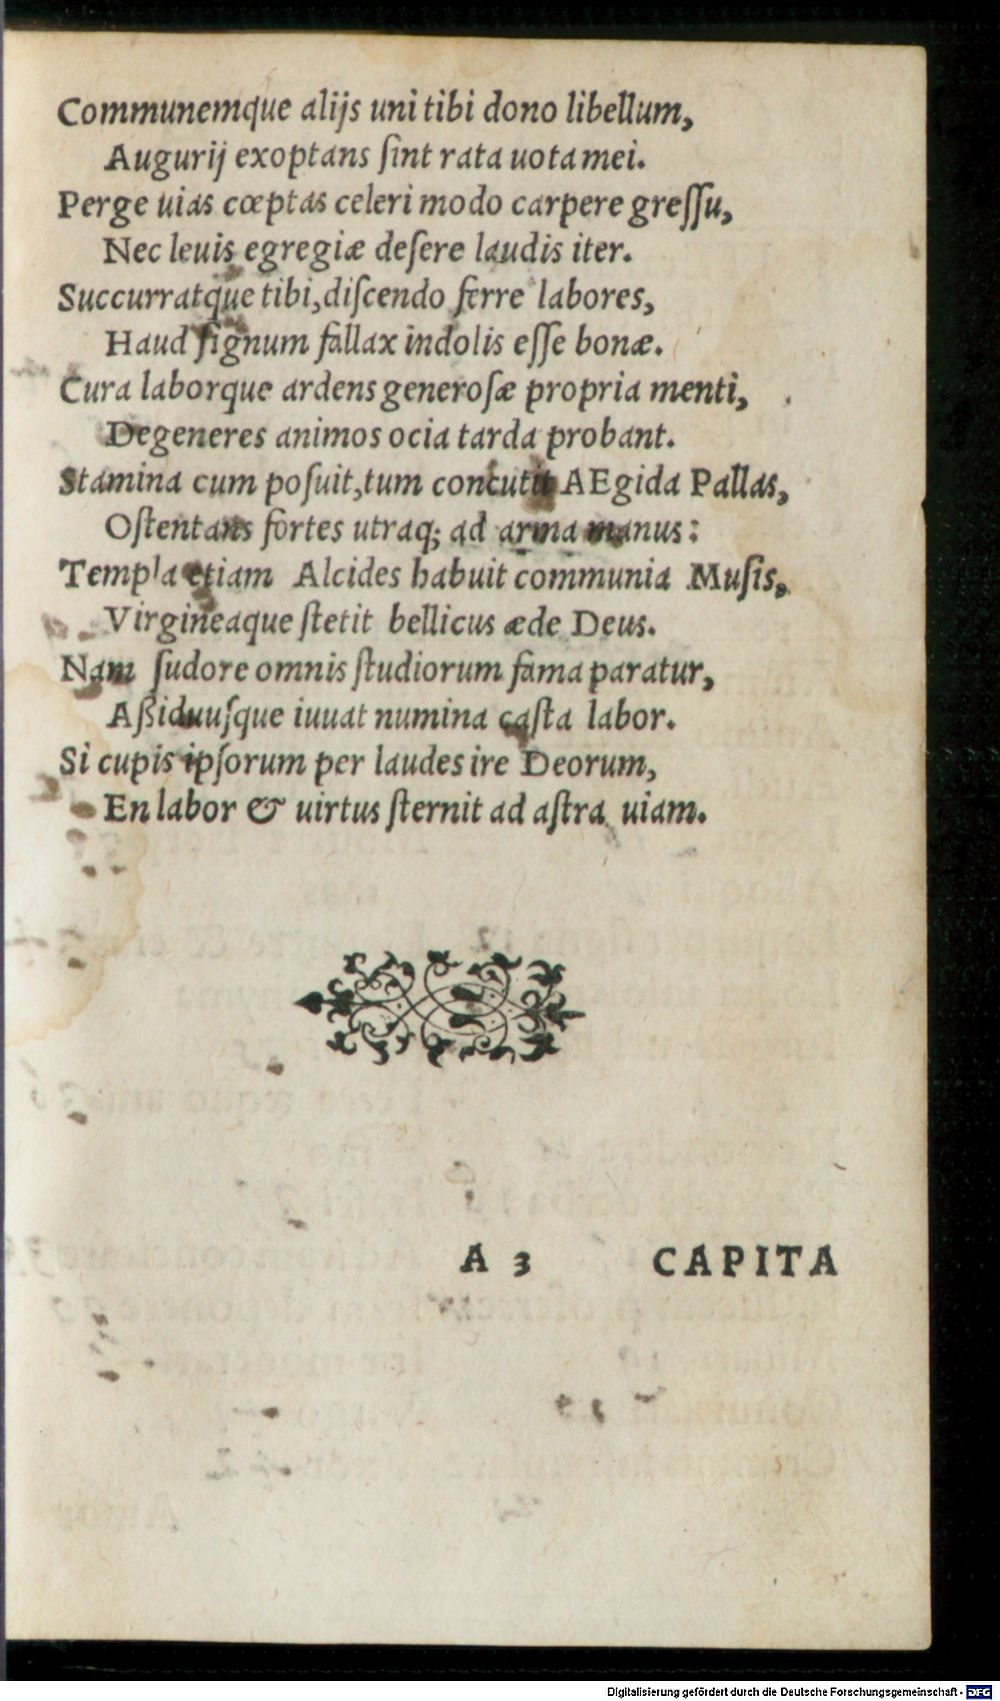 Communemque alijs uni tibi dono libellum,
Augurij exoptans ſint rata uota mei.
Perge uias cœptas celeri modo carpere greſſu,
Nec leuis egregiæ deſere laudis iter.
Succurratque tibi, diſcendo ferre labores,
Haud ſignum fallax indolis eſſe bonæ.
Cura laborque ardens generoſæ propria menti,
Degeneres animos ocia tarda probant.
Stamina cum poſuit, tum concutit AEgida Pallas,
Oſtentans fortes utraq; ad arma manus:
Templa etiam Alcides habuit communia Muſis,
Virgineaque ſtetit bellicus æde Deus.
Nam ſudore omnis ſtudiorum fama paratur,
Aßiduuſque iuuat numina caſta labor.
Si cupis ipſorum per laudes ire Deorum,
En labor & uirtus ſternit ad aſtra uiam.
A 3 CAPITA
Digitalisierung gefördert durch die Deutsche Forschungsgemeinschaft - DFG